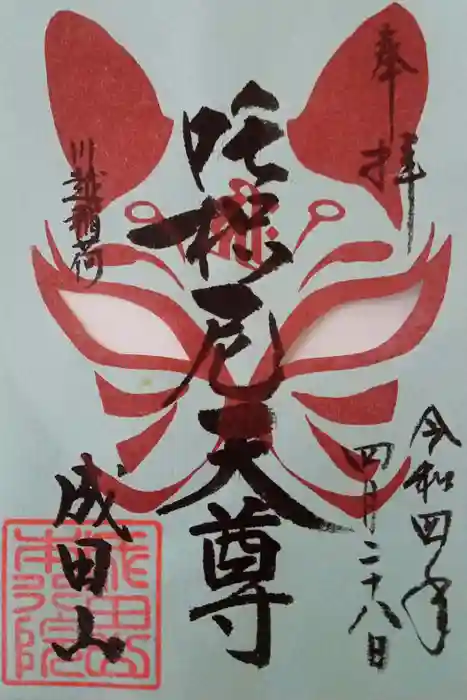 奉拝
令和四年
四月二十八日
吒枳尼天尊
川越稲荷
成田山